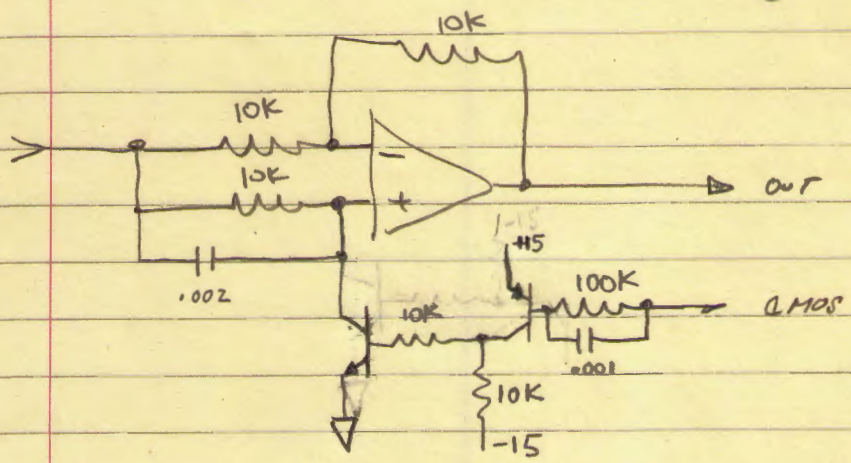 10K
10K
-
10K
+
OUT
+15
.002
100K
CMOS
10K
.001
10K
-15